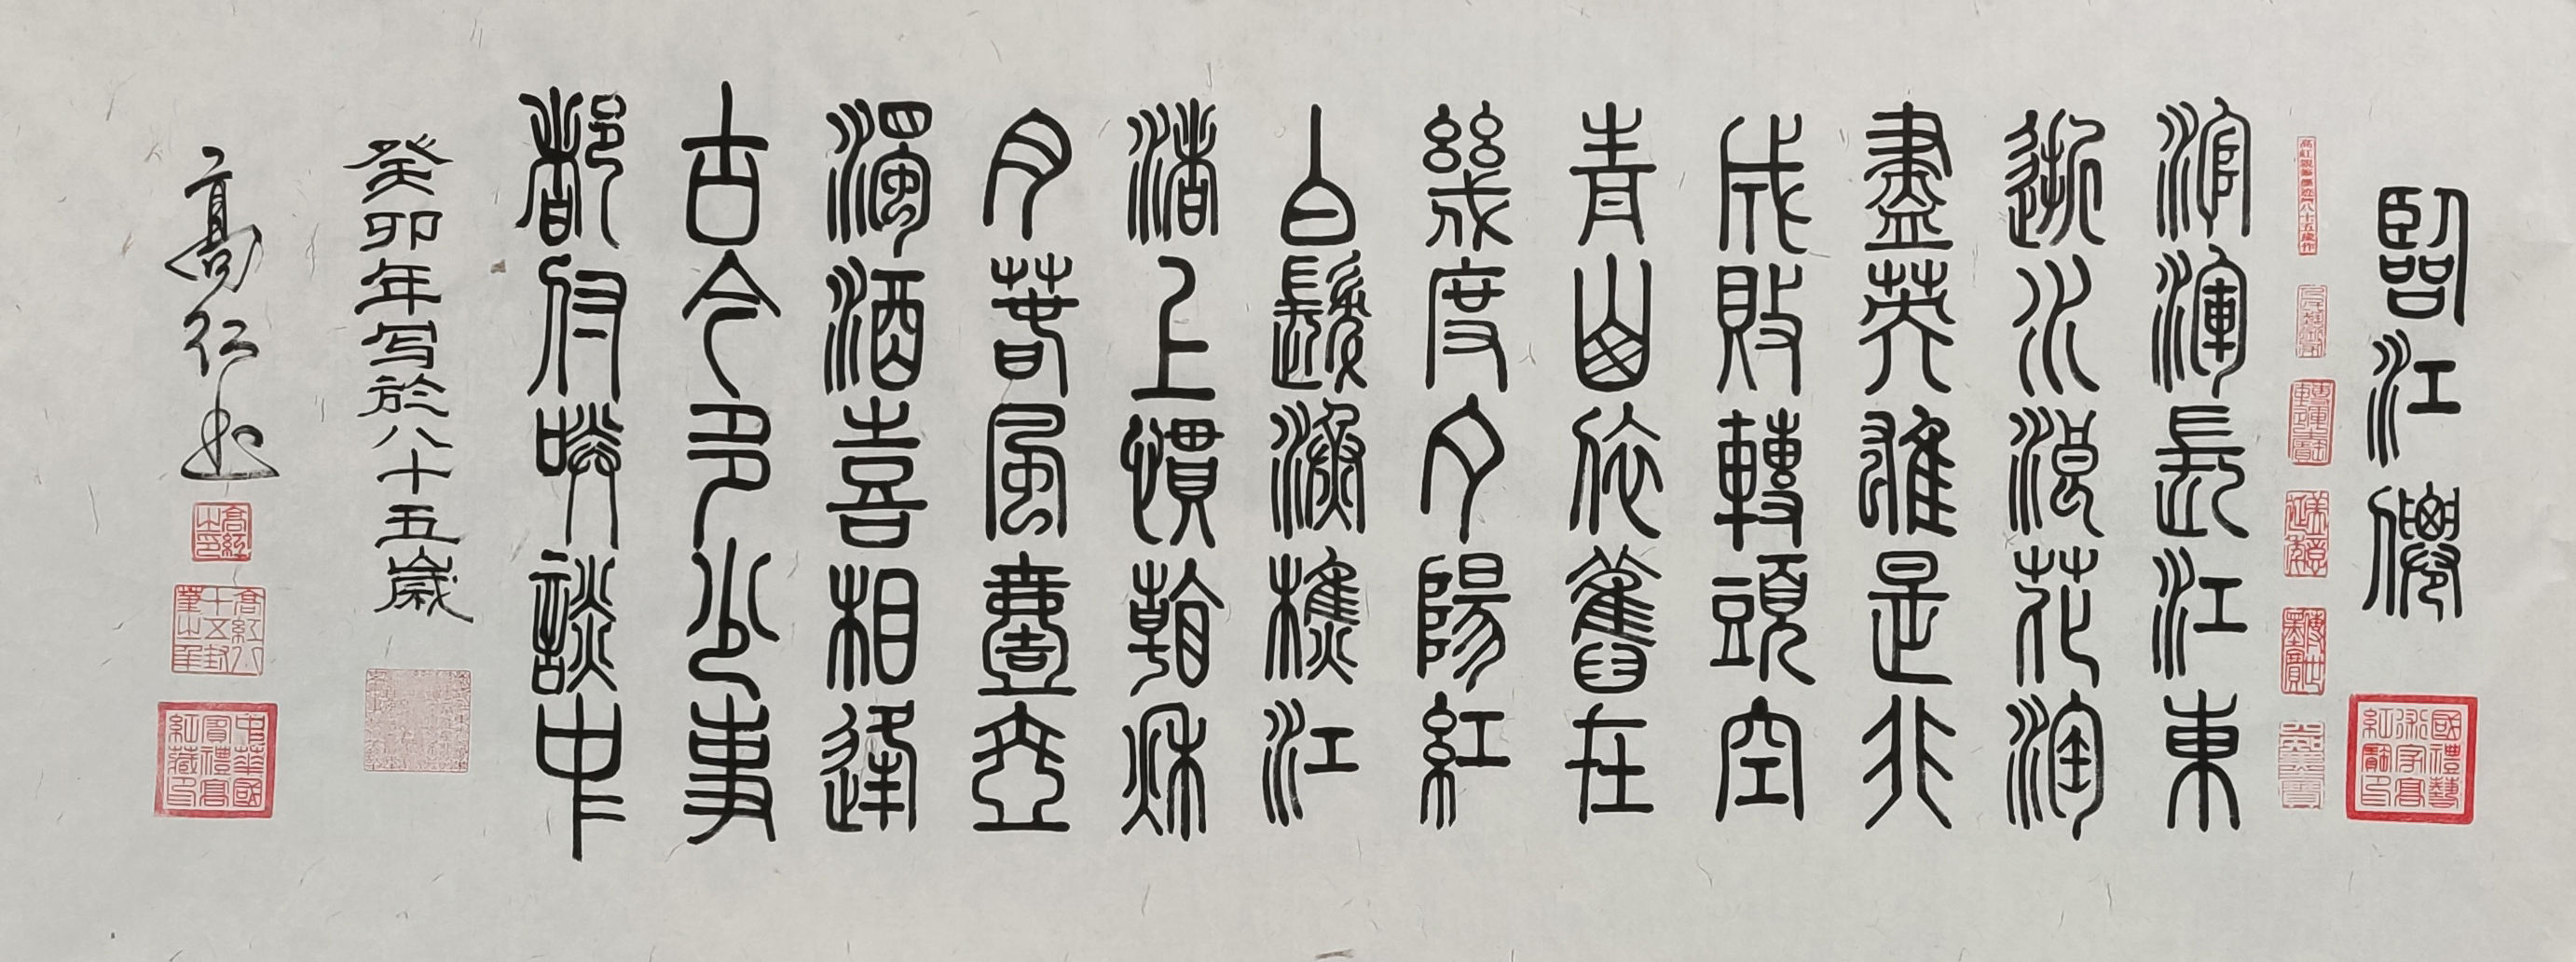 臨江僊
滾滾長江東
逝水浪花淘
盡英雄是非
成敗轉頭空
青山依舊在
幾度夕陽紅
白髮漁樵江
渚上慣看秋
月春風壹壺
濁酒喜相逢
古今多少事
都付笑談中
癸卯年写於八十五歲
高红书
高紅之印